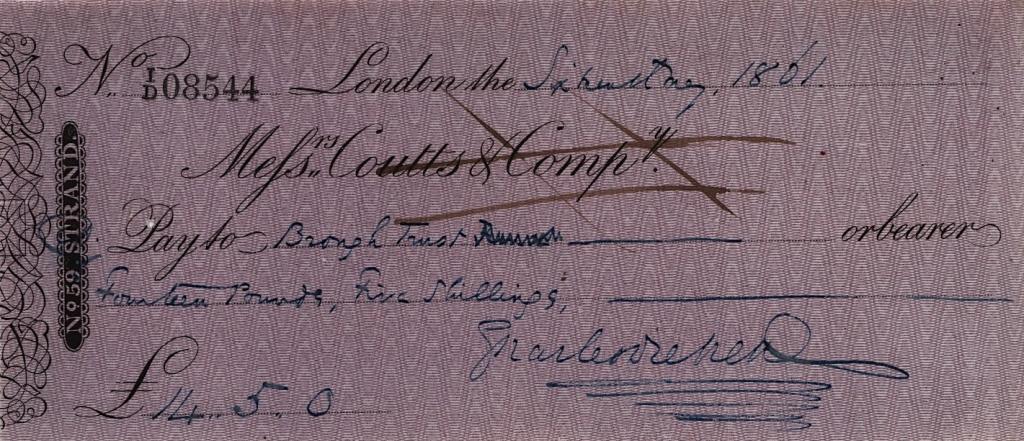 No. I/D 08544 London the Sixth May, 1861.
Messrs. Coutts & Compy.
Pay to Brough Trust or bearer
Fourteen Pounds, Five Shillings,
Charles Dickens
£14.5.0
No. 59 STRAND.